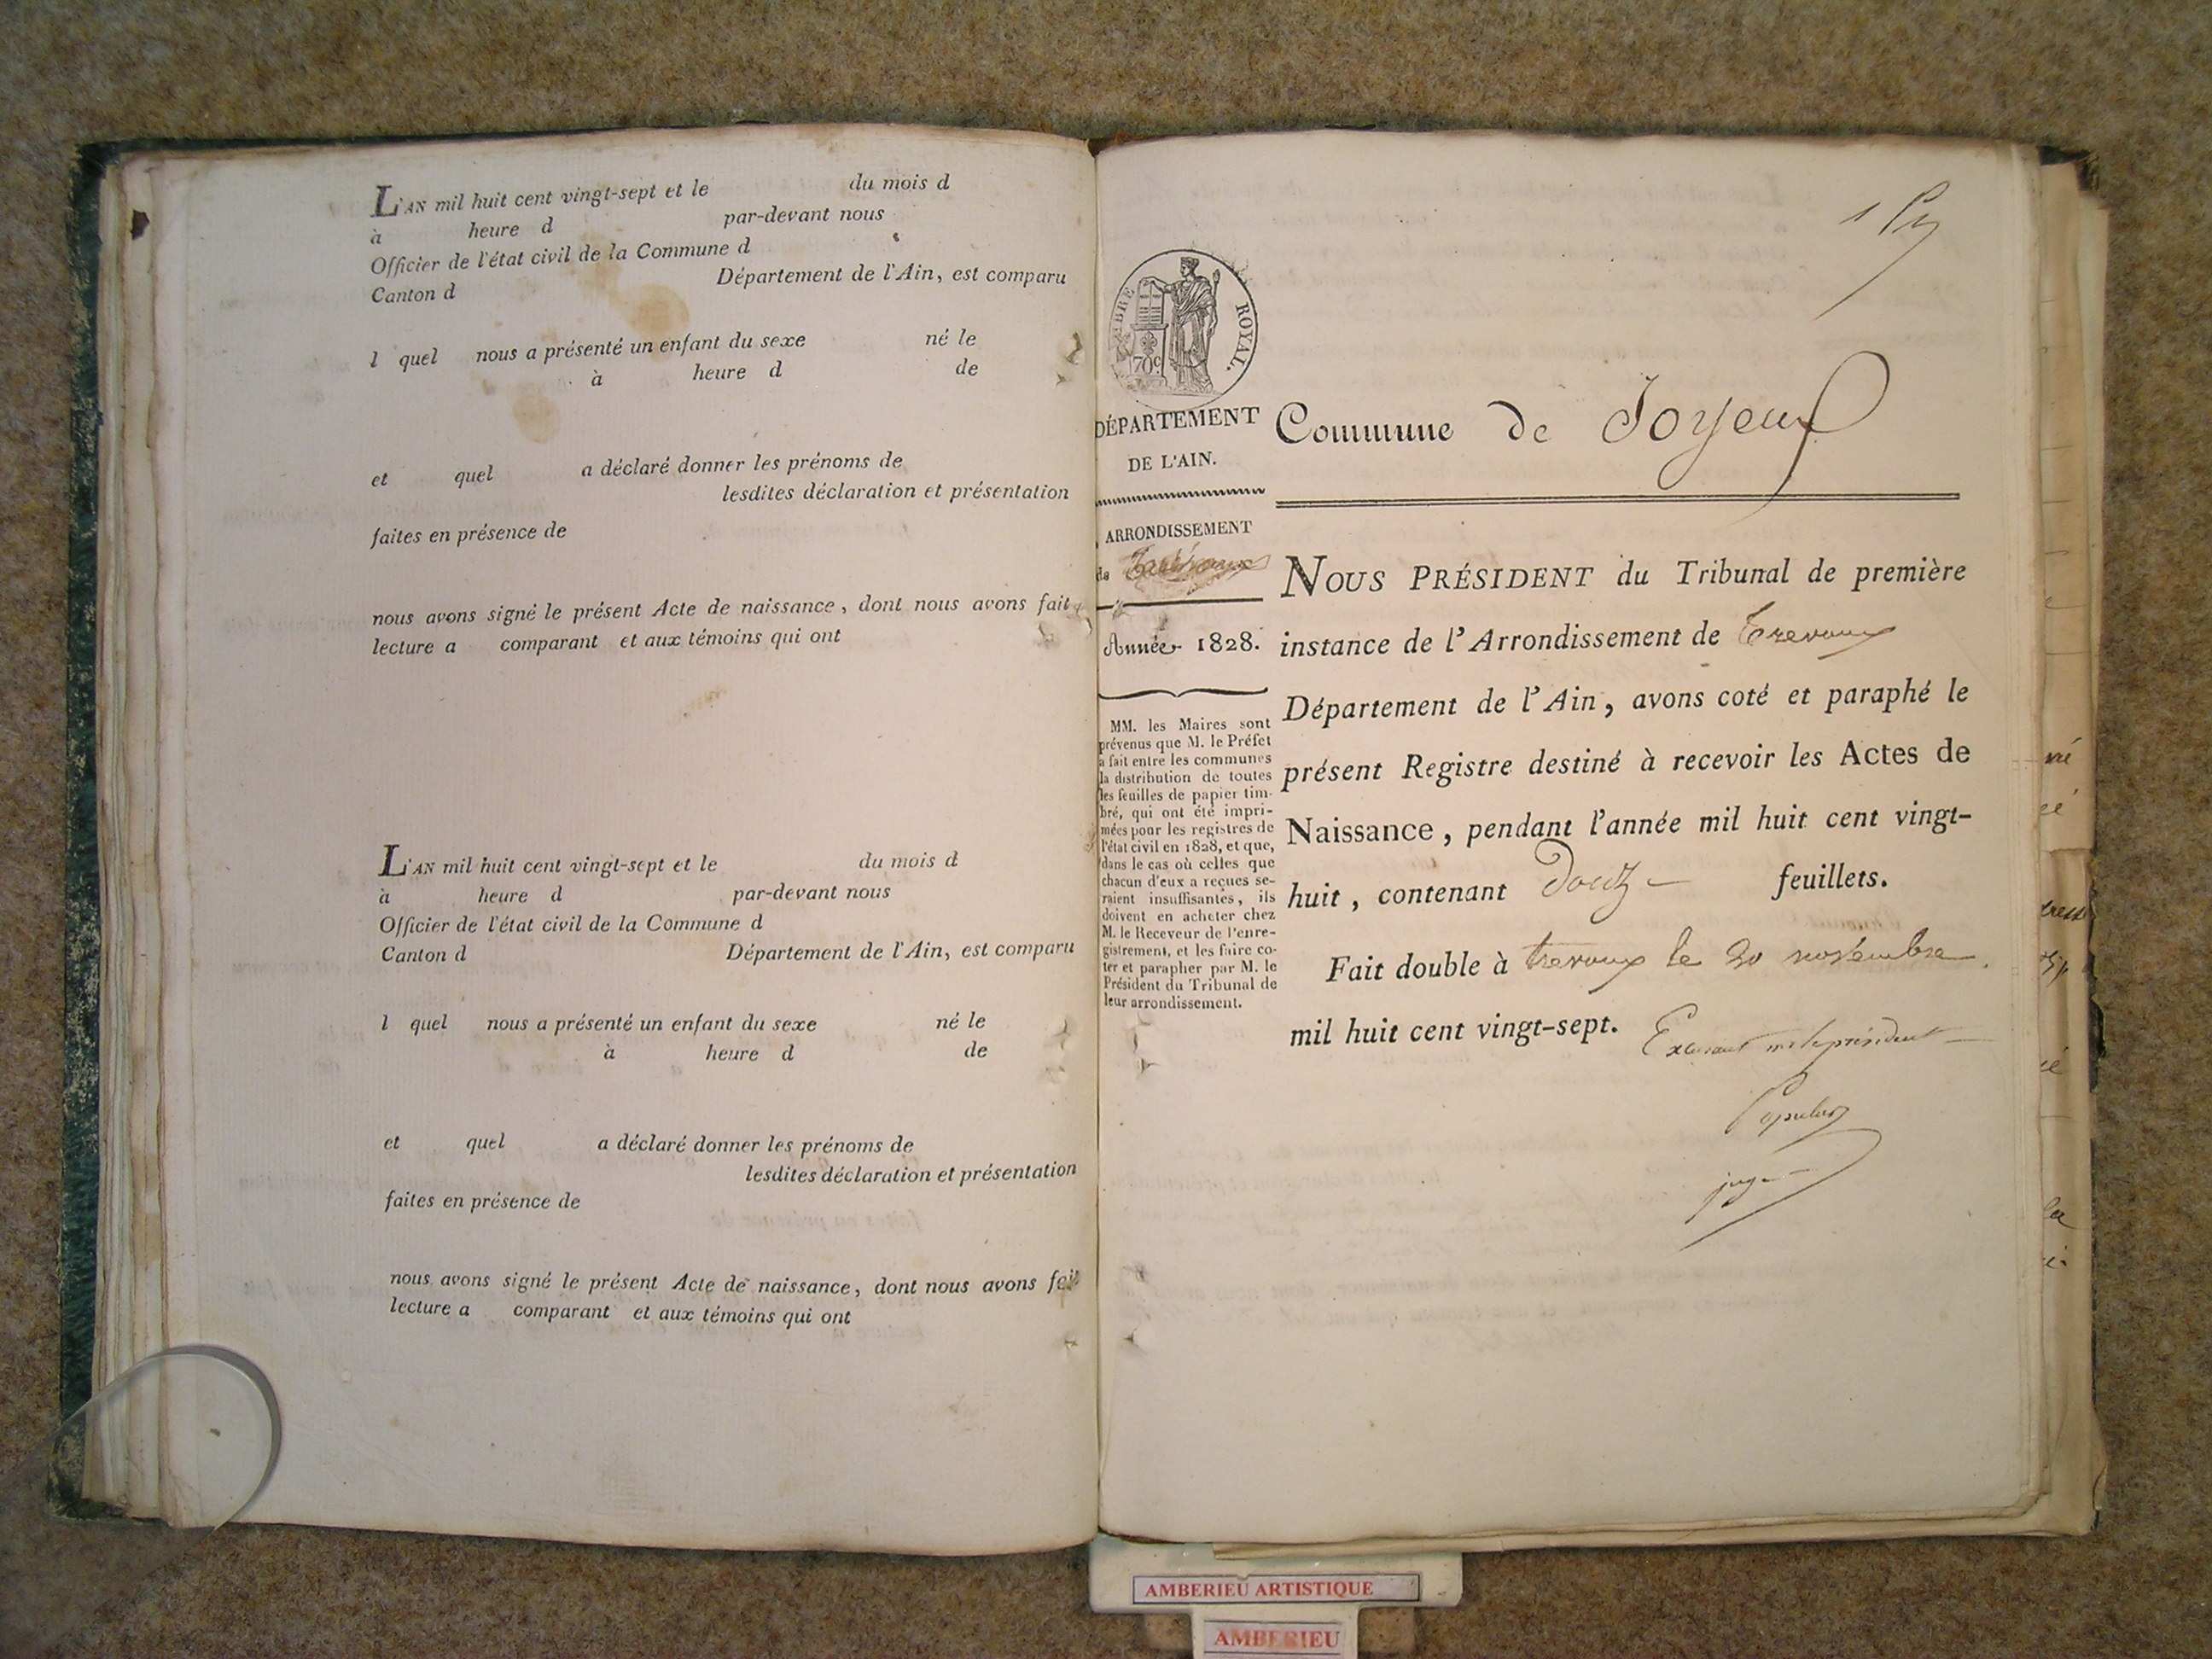 L'AN mil huit cent vingt-sept et le du mois d
à heure d par-devant nous
Officier de l'état civil de la Commune d
Canton d Département de l'Ain, est comparu
l quel nous a présenté un enfant du sexe né le
à heure d de
et quel a déclaré donner les prénoms de
lesdites déclaration et présentation
faites en présence de
nous avons signé le présent Acte de naissance, dont nous avons fait
lecture a comparant et aux témoins qui ont
L'AN mil huit cent vingt-sept et le du mois d
à heure d par-devant nous
Officier de l'état civil de la Commune d
Canton d Département de l'Ain, est comparu
l quel nous a présenté un enfant du sexe né le
à heure d de
et quel a déclaré donner les prénoms de
lesdites déclaration et présentation
faites en présence de
nous avons signé le présent Acte de naissance, dont nous avons fait
lecture a comparant et aux témoins qui ont
ROYAL.
70c
DÉPARTEMENT
DE L'AIN.
ARRONDISSEMENT
de Trévoux
Année 1828.
MM. les Maires sont
prévenus que M. le Préfet
a fait entre les communes
la distribution de toutes
les feuilles de papier tim-
bré, qui ont été impri-
mées pour les registres de
l'état civil en 1828, et que,
dans le cas où celles que
chacun d'eux a reçues se-
raient insuffisantes, ils
doivent en acheter chez
M. le Receveur de l'enre-
gistrement, et les faire co-
ter et parapher par M. le
Président du Tribunal de
leur arrondissement.
Commune de Joyeux
NOUS PRÉSIDENT du Tribunal de première
instance de l'Arrondissement de Trevoux
Département de l'Ain, avons coté et paraphé le
présent Registre destiné à recevoir les Actes de
Naissance, pendant l'année mil huit cent vingt-
huit, contenant douze feuillets.
Fait double à trevoux le 20 novembre
mil huit cent vingt-sept.
juge
AMBERIEU ARTISTIQUE
AMBERIEU